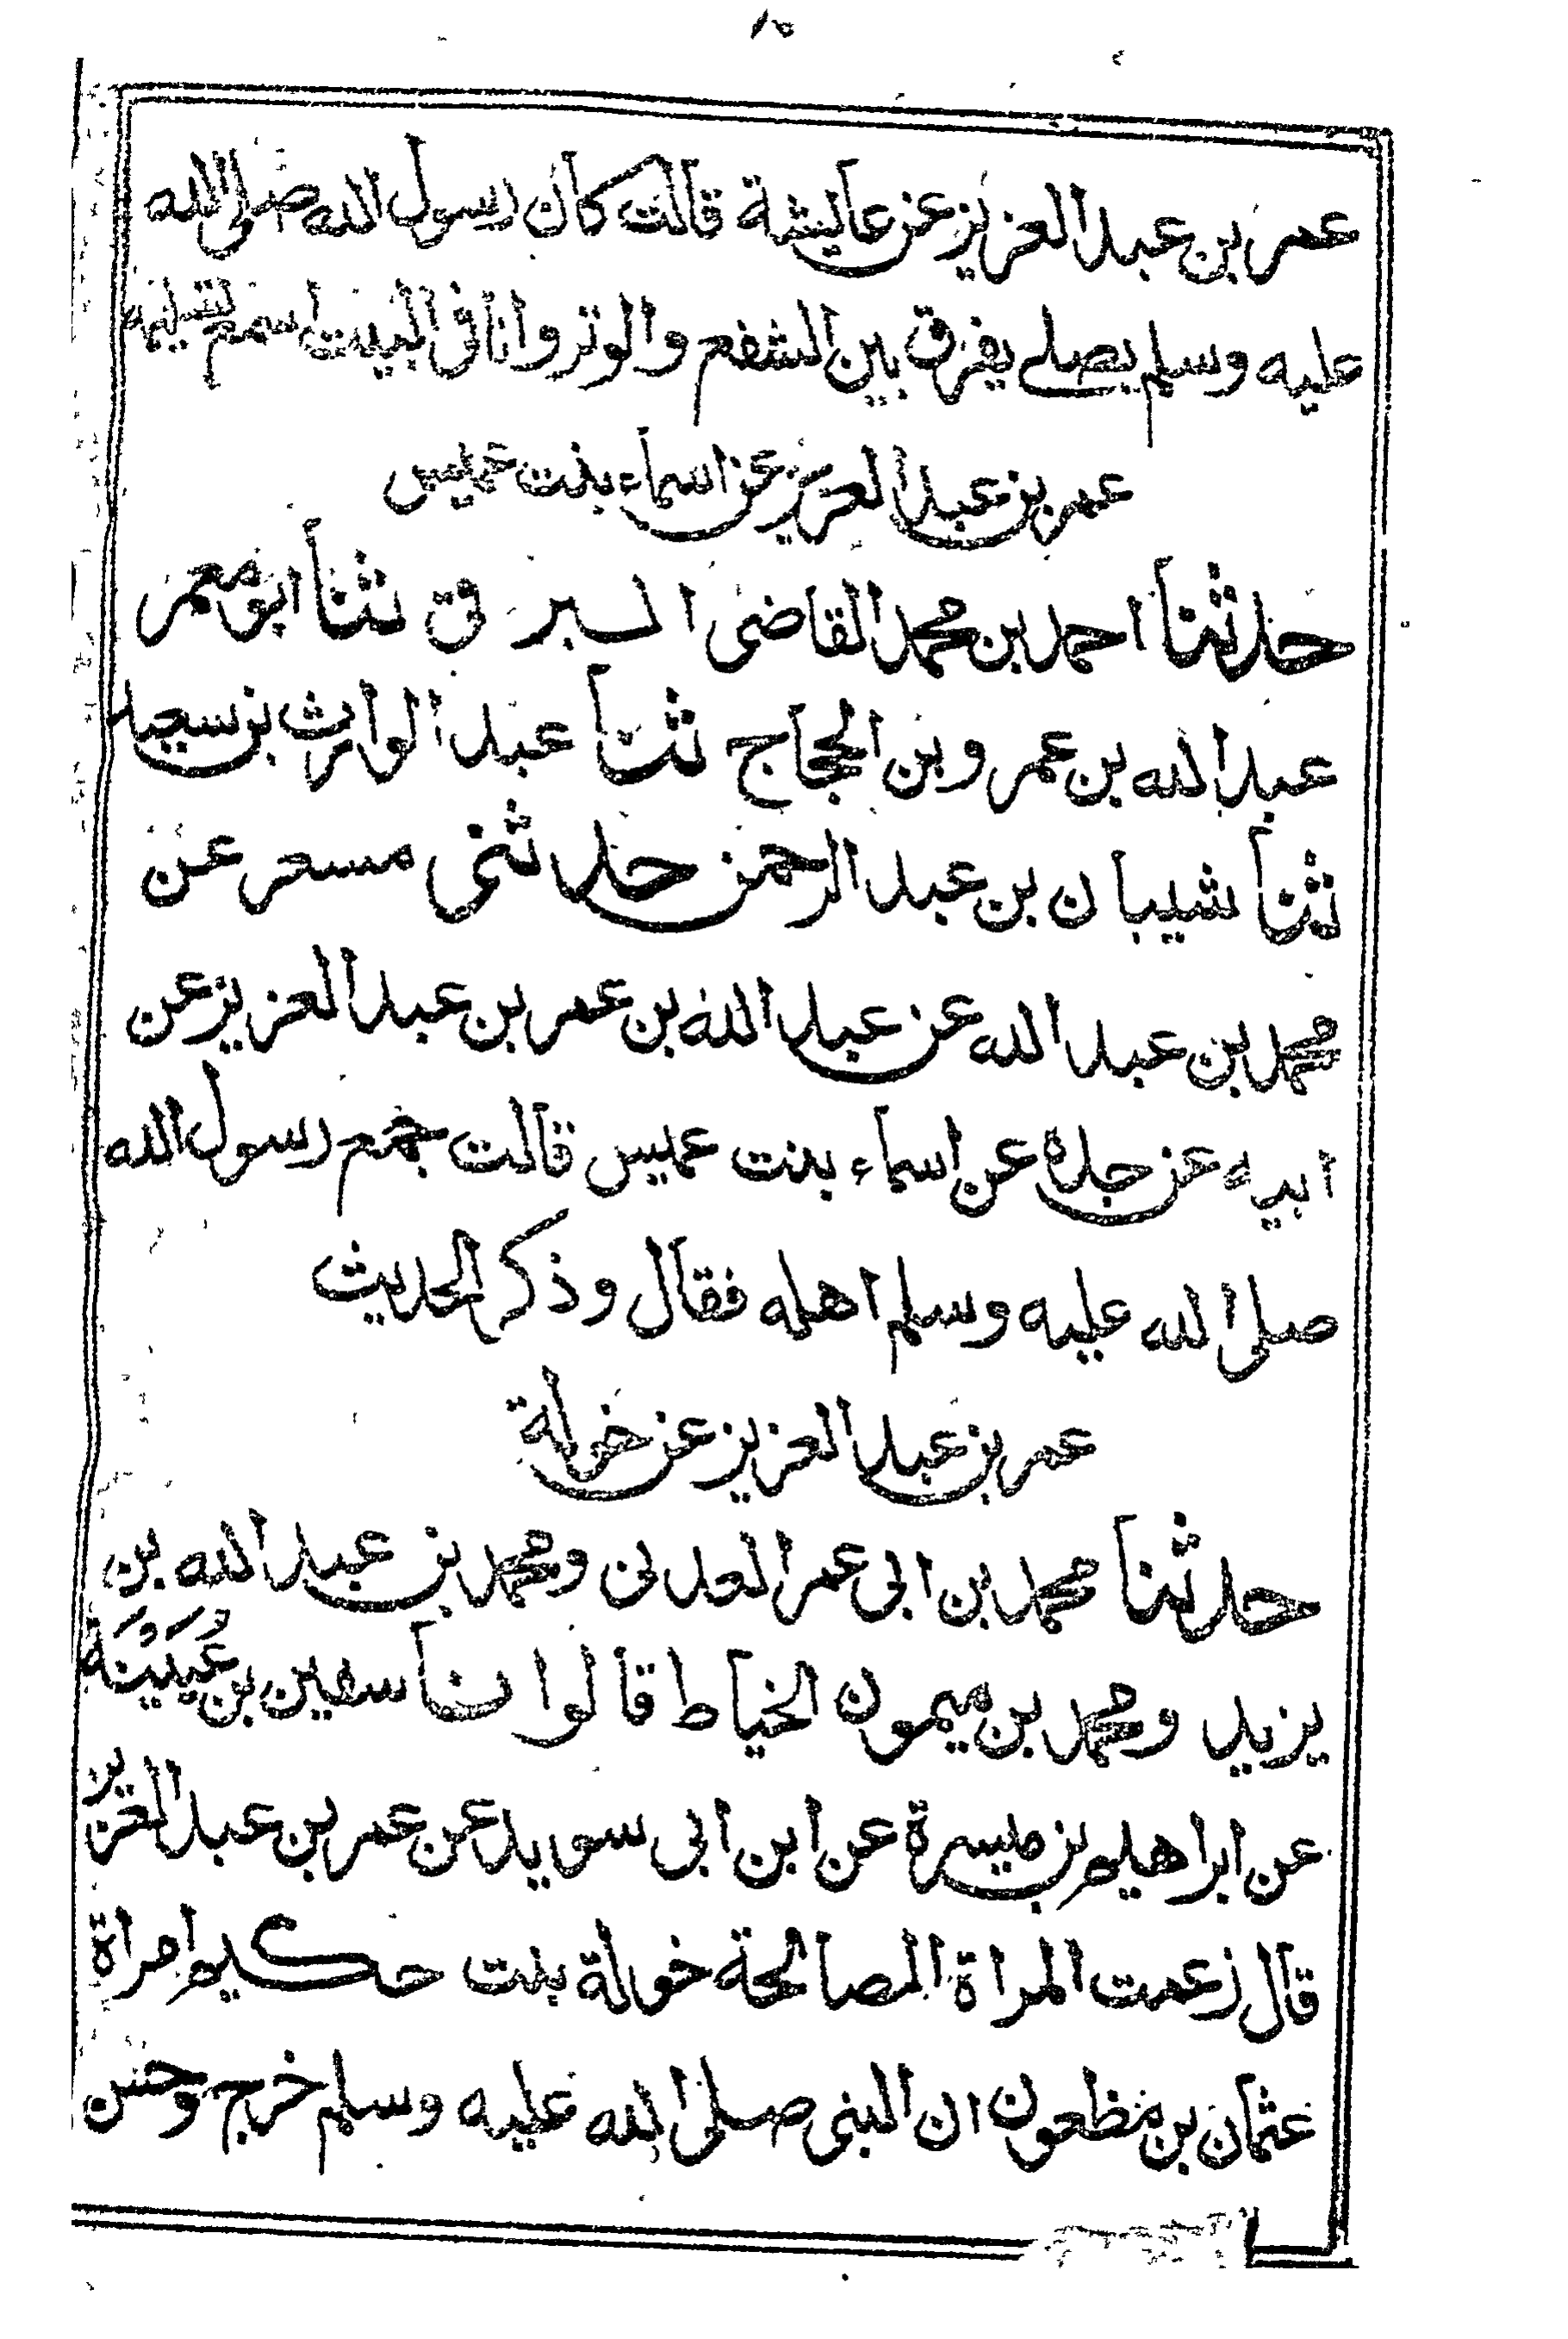 ١٥
عمر بن عبد العزيز عن عايشة قالت كان رسول الله صلى الله
عليه وسلم يصلے يفرق بين الشفع والوتر وانا فى البيت اسمع تسليمه
عمر بن عبد العزيز عن اسماء بنت عميس
حدثنا احمد بن محمد القاضى البرتى ثنا ابو معمر
عبد الله بن عمرو بن الحجاج ثنا عبد الوارث بن سعيد
ثنا شيبان بن عبد الرحمن حدثنى مسعر عن
محمد بن عبد الله عن عبد الله بن عمر بن عبد العزيز عن
ابيه عن جدة عن اسماء بنت عميس قالت جمع رسول الله
صلى الله عليه وسلم اهله فقال وذكر الحديث
عمر بن عبد العزيز عن خولة
حدثنا محمد بن ابى عمر العدنى ومحمد بن عبد الله بن
يزيد ومحمد بن ميمون الخياط قالوا نا سفين بن عُيَيْنَة
عن ابراهيم بن ميسرة عن ابن ابى سويد عن عمر بن عبد العزيز
قال زعمت المراة الصالحة خولة بنت حكيم امراة
عثمان بن مظعون ان النبى صلى الله عليه وسلم خرج وحسن